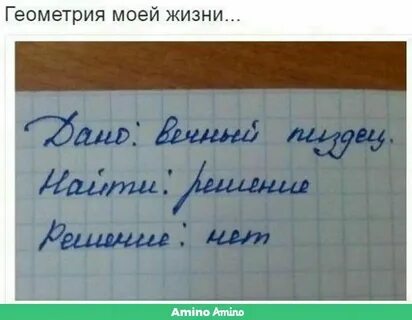 Геометрия моей жизни...
Дано: вечный пиздец.
Найти: решение
Решение: нет
Amino Amino